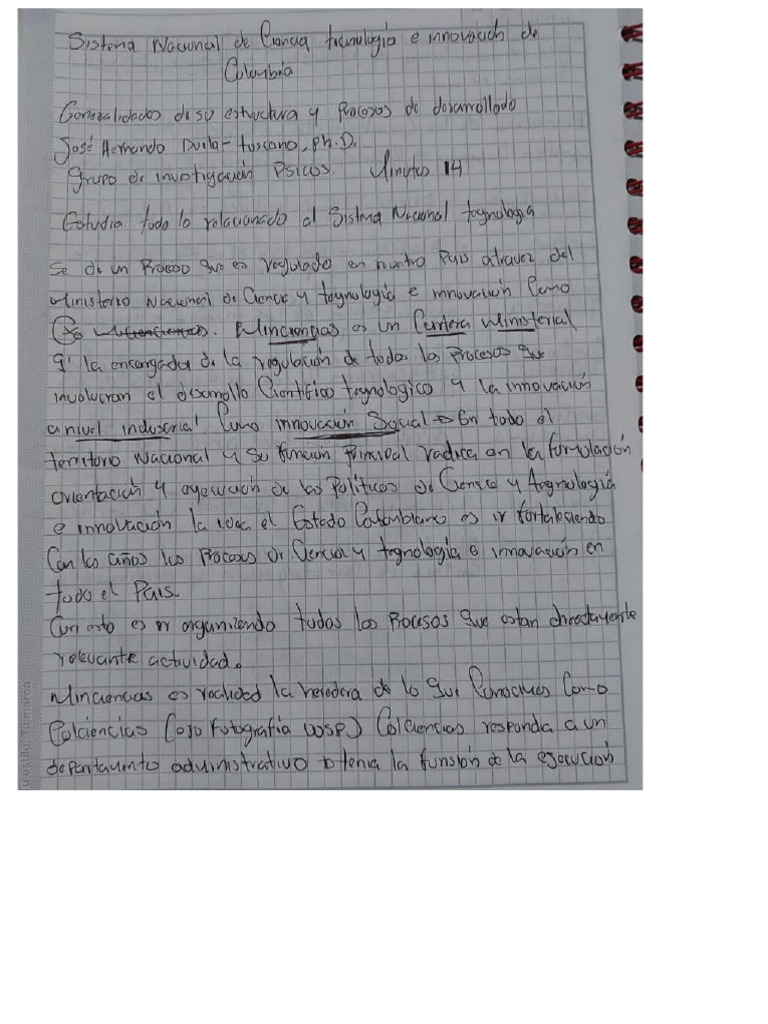 Sistema Nacional de Ciencia tecnología e innovación de
Colombia
Generalidades de su estructura y Procesos de desarrollado
José Hernando Duila-tuscano, ph.D.
Grupo de investigación Psicus. Minutos 14
Estudia todo lo relacionado el Sistema Nacional tegnologia
Se da un Proceso que es regulado en nuestro Pais atravez del
Ministerio Nacional de Ciencia y tegnologia e innovación Como
Es Minciencias es un Cartera Ministerial
q' la encargada de la regulación de todos los Procesos que
involucran el desarrollo Cientifico tegnologico y la innovación
a nivel industrial Como innovación Social En todo el
territorio Nacional y su función Principal radica en la formulación
orientación y de las Políticas de Ciencia y tegnología
e innovación la el Estado Colombiano es ir fortaleciendo
Con los años los Procesos de Ciencia y tegnología e innovación en
todo el Pais.
Con esto es ir organizando todos los Procesos que estan directamente
relevante actividad.
Minciencias es realidad la heredera de lo que Conocimos Como
Colciencias (ojo fotografía DDSP) Colciencias responda a un
departamento administrativo tenia la funsión de la ejecución
uestilo Turmaron